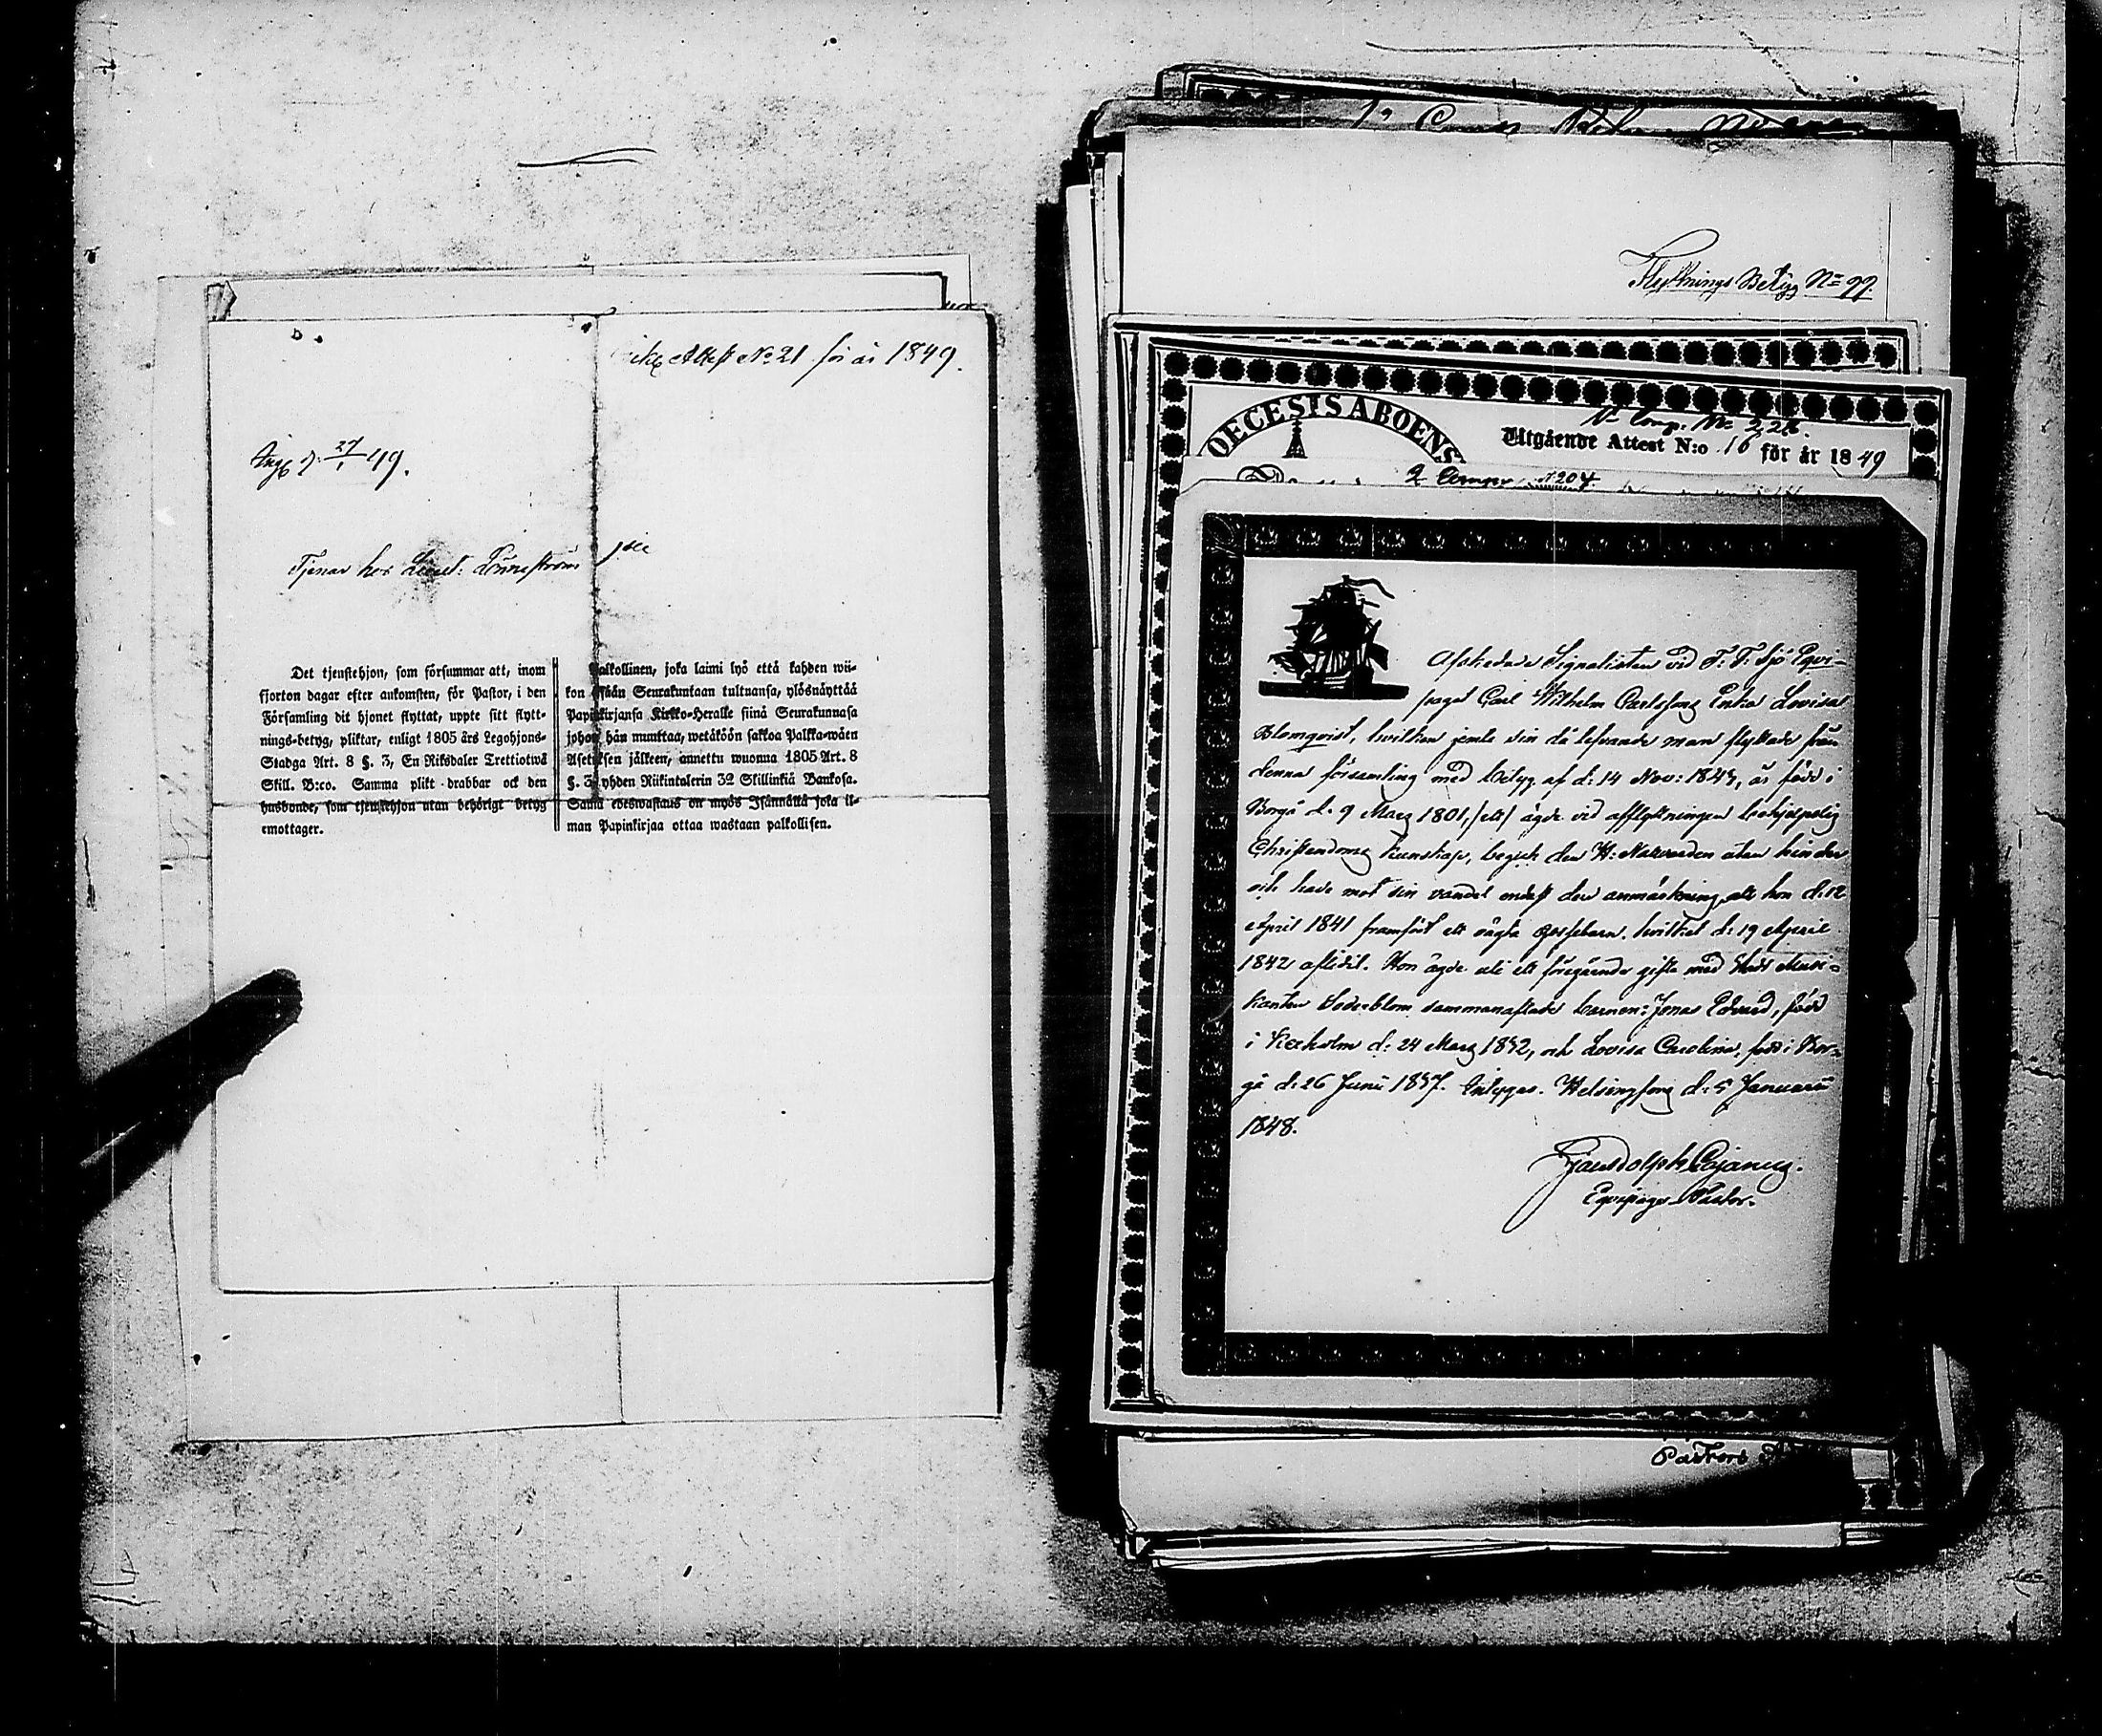 Attest No 21 för år 1849.
Ing. d. 27/1 49.
Tjenar hos Lieut: Lönnström
Det tjenstehjon, som försummar att, inom
fjorton dagar efter ankomsten, för Pastor, i den
Församling dit hjonet flyttat, uppte sitt flytt-
nings-betyg, pliktar, enligt 1805 års Legohjons-
Stadga Art. 8 §. 3, En Riksdaler Trettiotwå
Skill. B:co. Samma plikt drabbar ock den
husbonde, som tjenstehjon utan behörigt betyg
emottager.
Palkollinen, joka laimi lyö että kahden wii-
kon sisään Seurakuntaan tultuansa, ylösnäyttää
Papinkirjansa Kirkko-Heralle siinä Seurakunnasa
johon hän muuttaa, wetäköön sakkoa Palkka-wäen
Asetuksen jälkeen, annettu wuonna 1805 Art. 8
§. 3, yhden Riikintalerin 32 Skillinkiä Bankosa.
Sama edeswastaus on myös Isännällä joka il-
man Papinkirjaa ottaa wastaan palkollisen.
Flyttnings Betyg No 99.
OECESIS ABOENS
No Comp. No 226.
Utgående Attest N:o 16 för år 1849
2 Comp. No 204
Afskedade Signalisten vid F. F. Sjö Eqvi-
paget Carl Wilhelm Carlssons Enka Lovisa
Blomqvist, hvilken jemte sin då lefvande man flyttade från
denna församling med betyg af d: 14 Nov: 1843, är född i
Borgå d. 9 Mars 1801, ägde vid afflyttningen behjelpelig
Christendoms kunskap, begick den H: Nattvarden utan hinder
och hade mot sin vandel endast den anmärkning, att hon d. 12
April 1841 framfödt ett oägta gossebarn, hvilket d: 19 April
1842 aflidit. Hon ägde uti ett föregående gifte med Musi-
kanten Söderblom sammanaflade barnen: Jonas Edvard, född
i Kexholm d: 24 Mars 1832, och Lovisa Carolina, född i Bor-
gå d. 26 Junii 1837. Intygas. Helsingfors d: 5 Januarii
1848.
Cajanus.
Eqvipage-Pastor.
Pastors